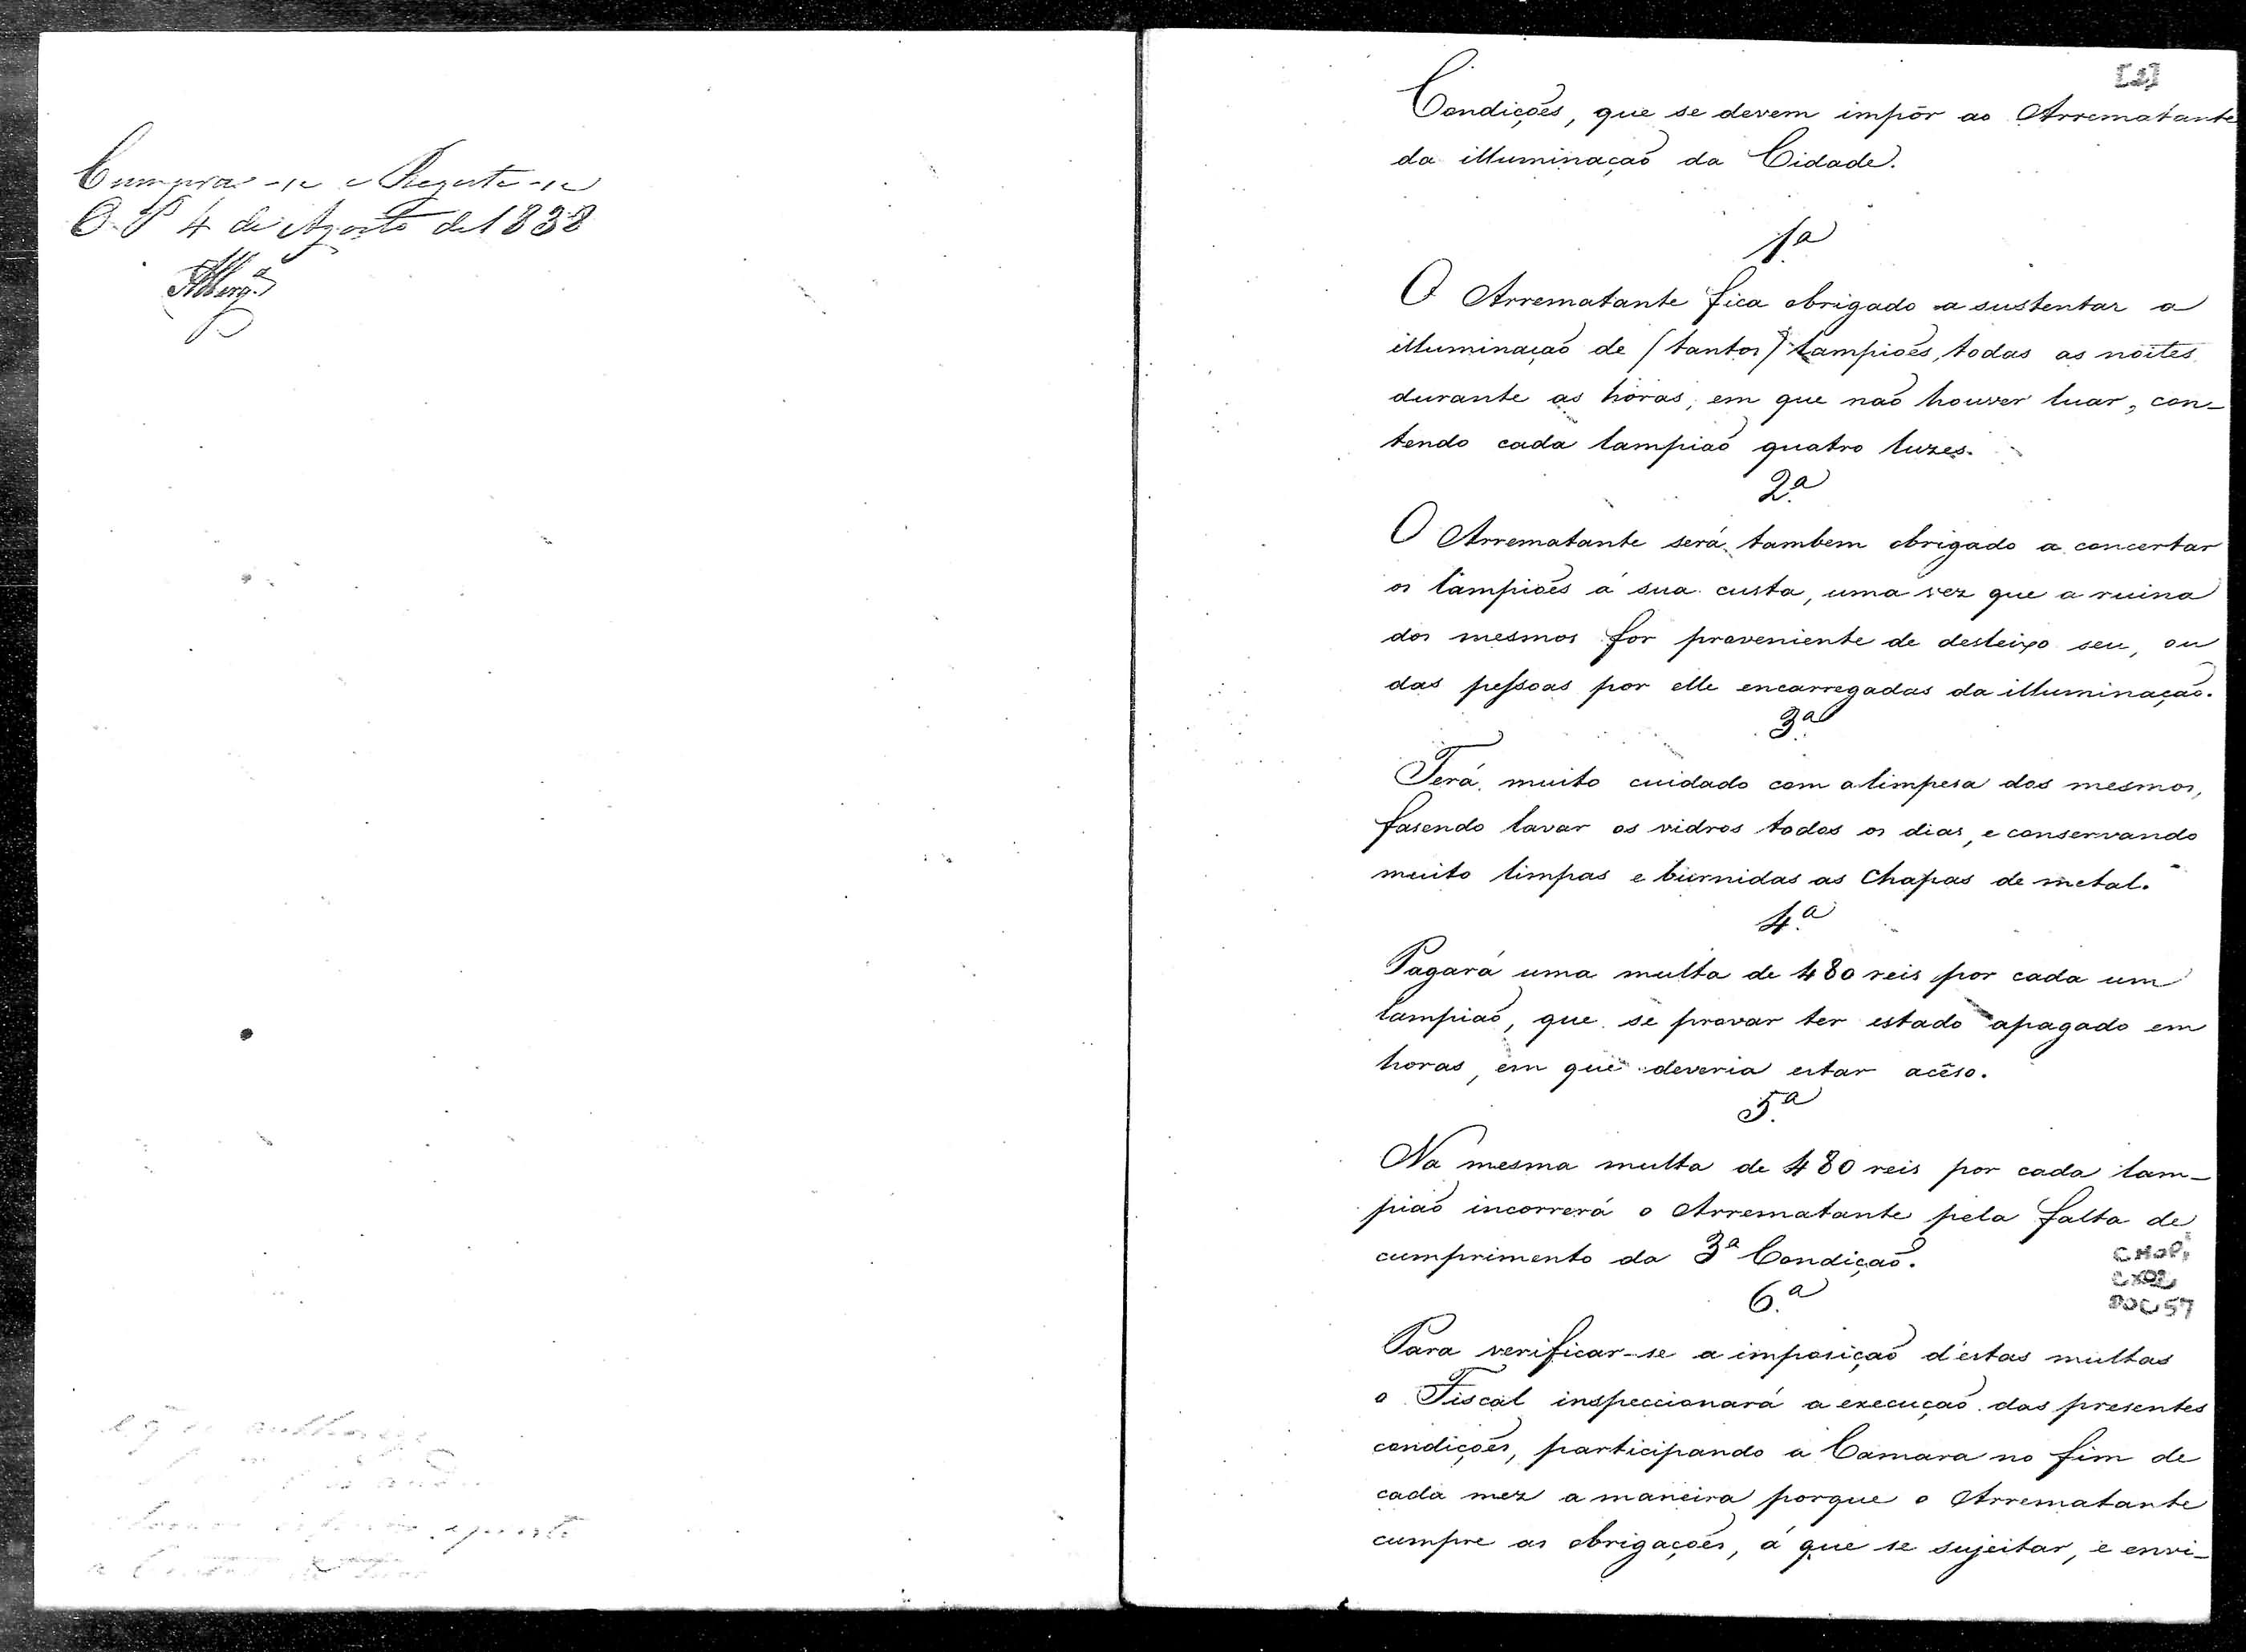 Cumpra-se e Registe-se
O. P 4 de Agosto de 1838
[1]
Condições, que se devem impôr ao Arrematante
da illuminaçaõ da Cidade.
1.ª
O Arrematante fica obrigado a sustentar a
illuminaçaõ de (tantos) lampiões, todas as noites
durante as horas, em que naõ houver luar, con-
tendo cada lampiaõ quatro luzes.
2.ª
O Arrematante será tambem obrigado a concertar
os lampiões á sua custa, uma vez que a ruina
dos mesmos for proveniente de desleixo seu, ou
das pessoas por elle encarregadas da illuminaçaõ.
3.ª
Terá muito cuidado com a limpesa dos mesmos,
fasendo lavar os vidros todos os dias, e conservando
muito limpas e burnidas as chapas de metal.
4.ª
Pagará uma multa de 480 reis por cada um
lampiaõ, que se provar ter estado apagado em
horas, em que deveria estar acêso.
5.ª
Na mesma multa de 480 reis por cada lam-
piaõ incorrerá o Arrematante pela falta de
cumprimento da 3ª Condiçaõ.
CMOP,
CX02
DOC 57
6.ª
Para verificar-se a imposiçaõ d'estas multas
o Fiscal inspeccionará a execuçaõ das presentes
condições, participando á Camara no fim de
cada mez a maneira porque o Arrematante
cumpre as obrigações, á que se sujeitar, e envi-